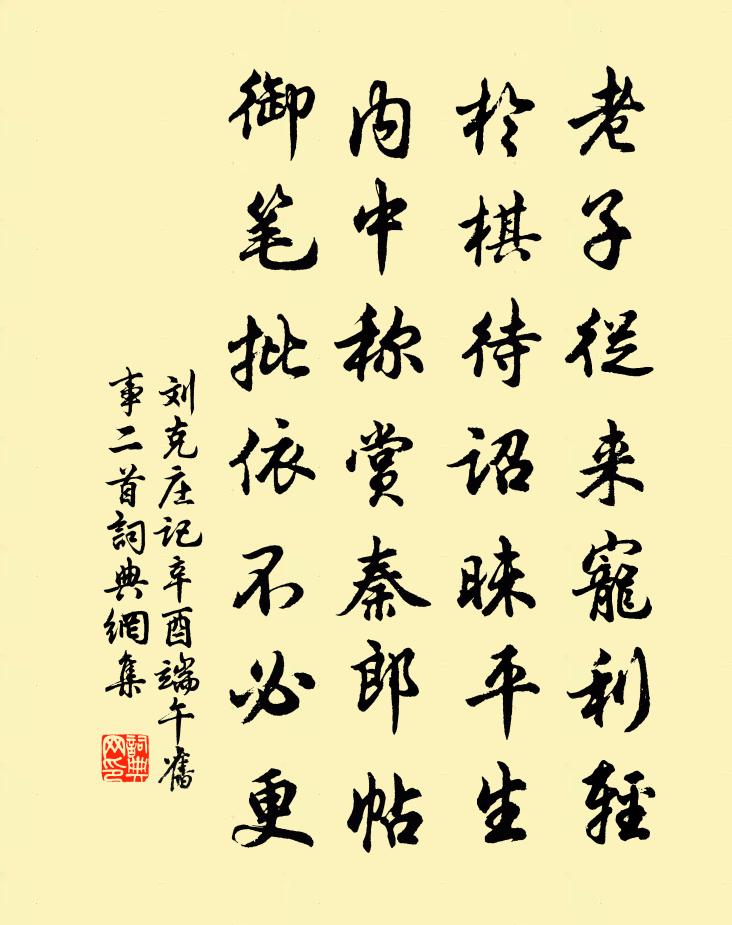 老子從来寵利輕
於棋待诏昧平生
内中称赏秦郎帖
御笔批依不必更
刘克庄记辛酉端午舊
事二首詞典網集
詞典网印